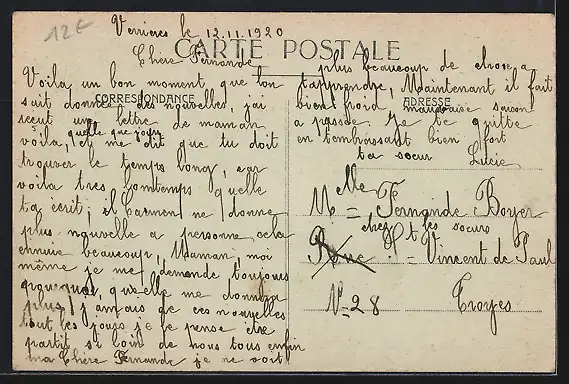 12€
Verrieres le 12.11.1920
CARTE POSTALE
Chère Fernande
Voila un bon moment que lon
sait donnée des nouvelles, jai
CORRESPONDANCE
recut un lettre de maman
quelle que jours
voila, et me dit que tu doit
trouver le temps long, car
voila tres lomtemps quelle
ta écrit, et Carmen ne donne
plus nouvelle a personne cela
ennuie beaucoup Maman, moi
même je me demande toujours
quelle me donnera
plus jamais de ces nouvelles
tout les jours je te pense être
partit si loin de nous tous enfin
ma Chère Fernande je ne voit
plus beaucoup de chose a
tapprendre, Maintenant il fait
bien froid, mauvaise saison
ADRESSE
a passée. Je te quitte
en tembrassant bien fort
ta sœur
Lucie
Melle Fernande Boyer
chez les sœurs
Rue St Vincent de Paul
N° 28 Troyes